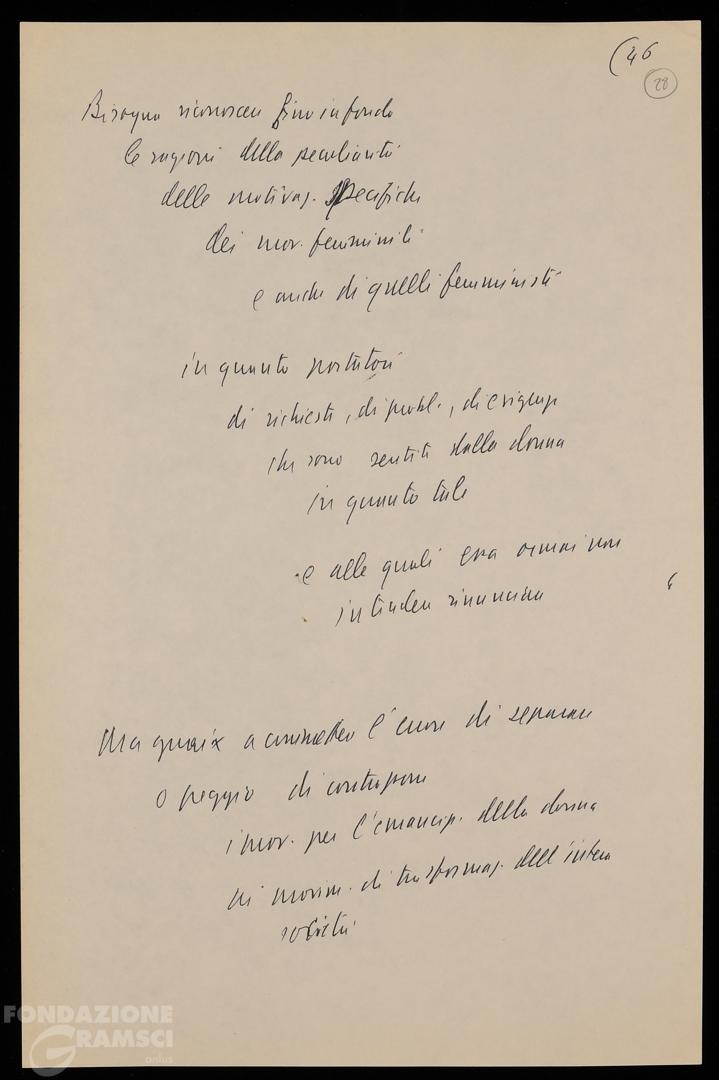 (46
28
Bisogna riconoscere fino in fondo
le ragioni della peculiarità
delle motivaz. specifiche
dei mov. femminili
e anche di quelli femministi
in quanto portatori
di richieste, di probl., di esigenze
che sono sentite dalla donna
in quanto tale
e alle quali essa ormai non
intende rinunciare
Ma guai a commettere l'errore di separare
o peggio di contrapporre
i mov. per l'emancip. della donna
ai movim. di trasformaz. dell'intera
società
FONDAZIONE
GRAMSCI
onlus